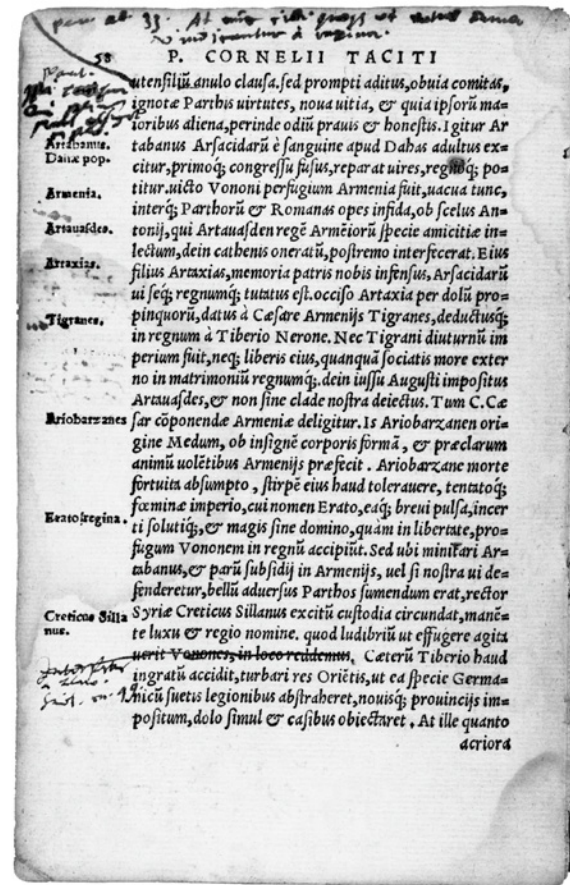 58 P. CORNELII TACITI
utenſiliũ anulo clauſa. ſed prompti aditus, obuia comitas,
ignotæ Parthis virtutes, noua uitia, & quia ipſorũ ma=
ioribus aliena, perinde odiũ prauis & honeſtis. Igitur Ar
Artabanus.
tabanus Arſacidarũ è ſanguine apud Dahas adultus ex=
Dahæ pop.
citur, primoq; congreſſu fuſus, reparat uires, regnoq; po=
titur. uicto Vononi perfugium Armenia fuit, uacua tunc,
Armenia.
interq; Parthorũ & Romanas opes infida, ob ſcelus An=
tonij, qui Artauaſden regẽ Armẽiorũ ſpecie amicitiæ in=
Artauaſdes.
lectum, dein cathenis oneratũ, poſtremo interfecerat. Eius
filius Artaxias, memoria patris nobis infenſus, Arſacidarũ
Artaxias.
ui ſeq; regnumq; tutatus eſt. occiſo Artaxia per dolũ pro=
pinquorũ, datus à Cæſare Armenijs Tigranes, deductusq;
Tigranes.
in regnum à Tiberio Nerone. Nec Tigrani diuturnũ im
perium fuit, neq; liberis eius, quanquã ſociatis more exter
no in matrimoniũ regnumq;. dein iuſſu Auguſti impoſitus
Artauaſdes, & non ſine clade noſtra deiectus. Tum C. Cæ
Ariobarzanes
ſar cõponendæ Armeniæ deligitur. Is Ariobarzanen ori=
gine Medum, ob inſignẽ corporis formã, & præclarum
animũ uolẽtibus Armenijs præfecit. Ariobarzane morte
fortuita abſumpto, ſtirpẽ eius haud tolerauere, tentatoq;
fœminæ imperio, cui nomen Erato, eaq; breui pulſa, incer
Erato regina.
ti ſolutiq;, & magis ſine domino, quàm in libertate, pro=
fugum Vononem in regnũ accipiũt. Sed ubi minitari Ar=
tabanus, & parũ ſubſidij in Armenijs, uel ſi noſtra ui de=
fenderetur, bellũ aduerſus Parthos ſumendum erat, rector
Creticus Silla
Syriæ Creticus Sillanus excitũ cuſtodia circundat, manẽ=
nus.
te luxu & regio nomine. quod ludibriũ ut effugere agita
uerit Vonones, in loco reddemus. Cæterũ Tiberio haud
ingratũ accidit, turbari res Oriẽtis, ut ea ſpecie Germa=
nicũ ſuetis legionibus abſtraheret, nouisq; prouincijs im=
poſitum, dolo ſimul & caſibus obiectaret. At ille quanto
acriora